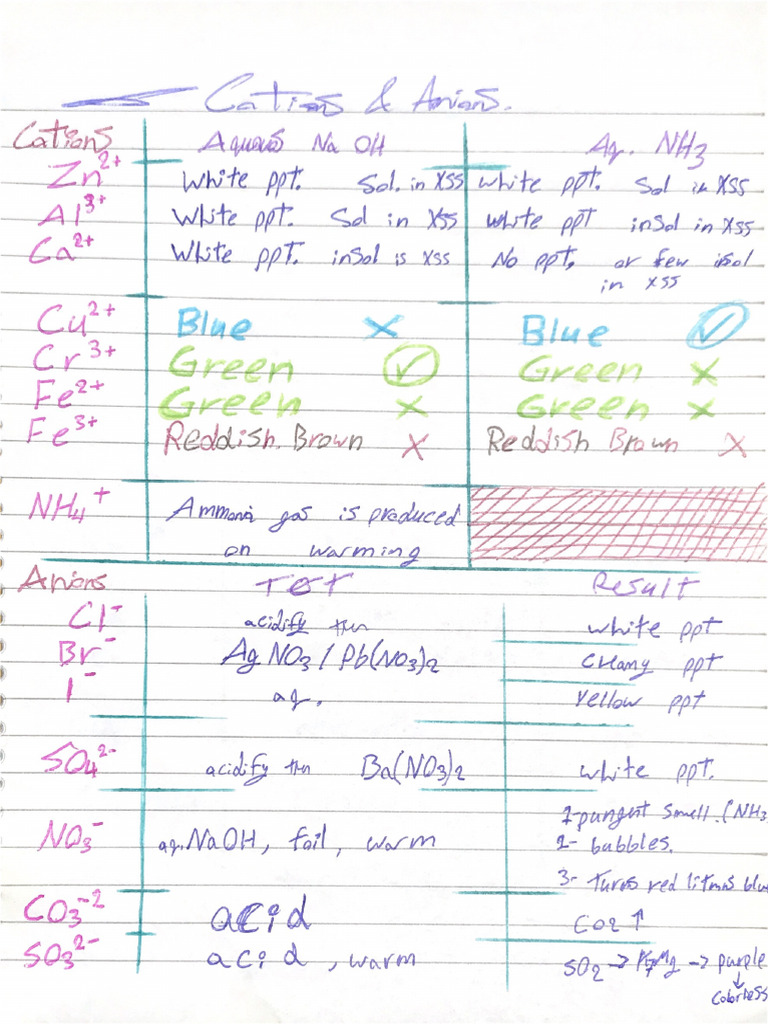 Cations & Anions.
Cations Aquous NaOH Aq. NH3
Zn2+ White ppt. Sol. in XSS white ppt. Sol in XSS
Al3+ White ppt. Sol in XSS white ppt insol in XSS
Ca2+ White ppt. insol is XSS No ppt. or few insol
in XSS
Cu2+ Blue ✗ Blue ✓
Cr3+ Green ✓ Green ✗
Fe2+ Green ✗ Green ✗
Fe3+ Reddish Brown ✗ Reddish Brown ✗
NH4+ Ammonia gas is produced
on warming
Anions Test Result
Cl- acidify then white ppt
Br- AgNO3 / Pb(NO3)2 creamy ppt
I- aq. Yellow ppt
SO42- acidify then Ba(NO3)2 white ppt.
1- pungent smell. (NH3
NO3- aq. NaOH, foil, warm 2- bubbles.
3- Turns red litmus blu
CO3-2 acid CO2 ↑
SO32- acid, warm SO2 → → purple
↓
Colorless